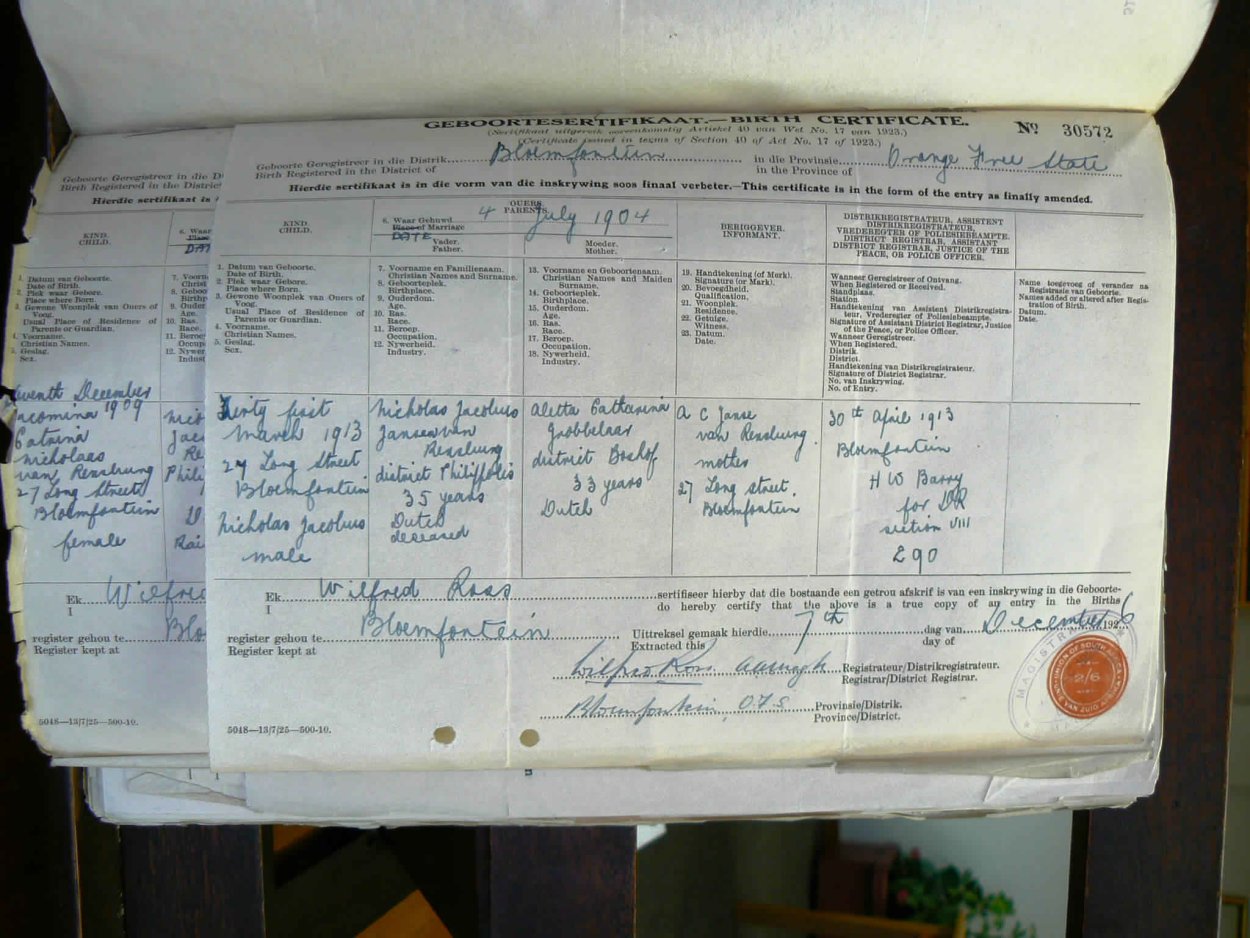 GEBOORTESERTIFIKAAT.—BIRTH CERTIFICATE.
(Sertifikaat uitgereik ooreenkomstig Artiekel 40 van Wet No. 17 van 1923.)
(Certificate issued in terms of Section 40 of Act No. 17 of 1923.)
Nº 30572
Geboorte Geregistreer in die Distrik Bloemfontein in die Provinsie Orange Free State
Birth Registered in the District of in the Province of
Hierdie sertifikaat is in die vorm van die inskrywing soos finaal verbeter.—This certificate is in the form of the entry as finally amended.
KIND.
CHILD.
OUERS
PARENTS
6. Waar Gehuwd 4 July 1904
Place of Marriage
DATE
Vader.
Father.
Moeder.
Mother.
BERIGGEVER.
INFORMANT.
DISTRIKREGISTRATEUR, ASSISTENT
DISTRIKREGISTRATEUR,
VREDEREGTER OF POLIESIEBEAMPTE.
DISTRICT REGISTRAR, ASSISTANT
DISTRICT REGISTRAR, JUSTICE OF THE
PEACE, OR POLICE OFFICER.
1. Datum van Geboorte.
Date of Birth.
2. Plek waar Gebore.
Place where Born.
3. Gewone Woonplek van Ouers of
Voog.
Usual Place of Residence of
Parents or Guardian.
4. Voorname.
Christian Names.
5. Geslag.
Sex.
7. Voorname en Familienaam.
Christian Names and Surname.
8. Geboorteplek.
Birthplace.
9. Ouderdom.
Age.
10. Ras.
Race.
11. Beroep.
Occupation.
12. Nywerheid.
Industry.
13. Voorname en Geboortenaam.
Christian Names and Maiden
Surname.
14. Geboorteplek.
Birthplace.
15. Ouderdom.
Age.
16. Ras.
Race.
17. Beroep.
Occupation.
18. Nywerheid.
Industry.
19. Handtekening (of Merk).
Signature (or Mark).
20. Bevoegdheid.
Qualification.
21. Woonplek.
Residence.
22. Getuige.
Witness.
23. Datum.
Date.
Wanneer Geregistreer of Ontvang.
When Registered or Received.
Standplaas.
Station.
Handtekening van Assistent Distrikregistra-
teur, Vrederegter of Poliesiebeampte.
Signature of Assistant District Registrar, Justice
of the Peace, or Police Officer.
Wanneer Geregistreer.
When Registered.
Distrik.
District.
Handtekening van Distrikregistrateur.
Signature of District Registrar.
No. van Inskrywing.
No. of Entry.
Name toegevoeg of verander na
Registrasie van Geboorte.
Names added or altered after Regis-
tration of Birth.
Datum.
Date.
Thirty first
March 1913
27 Long Street
Bloemfontein
Nicholas Jacobus
male
Nicholas Jacobus
Jansen van
Rensburg
district Philippolis
35 years
Dutch
deceased
Aletta Catharina
Grobbelaar
district Boshof
33 years
Dutch
A C Janse
van Rensburg
mother
27 Long street.
Bloemfontein
30th April 1913
Bloemfontein
H W Barry
for DR
section VIII
290
Ek Wilfred Ross sertifiseer hierby dat die bostaande een getrou afskrif is van een inskrywing in die Geboorte-
I do hereby certify that the above is a true copy of an entry in the Births
register gehou te Bloemfontein Uittreksel gemaak hierdie 7th dag van December 1926
Register kept at Extracted this day of
Wilfred Ross Registrateur/Distrikregistrateur.
Registrar/District Registrar.
Bloemfontein, OFS Provinsie/Distrik.
Province/District.
5048—13/7/25—500-10.
MAGISTRATE
UNION OF SOUTH AFRICA
2/6
UNIE VAN ZUID AFRIKA
Geboorte Geregistreer in die D
Birth Registered in the District
Hierdie sertifikaat is
KIND.
CHILD.
6. Waar
DAT
1. Datum van Geboorte.
Date of Birth.
2. Plek waar Gebore.
Place where Born.
3. Gewone Woonplek van Ouers of
Voog.
Usual Place of Residence of
Parents or Guardian.
4. Voorname.
Christian Names.
5. Geslag.
Sex.
7. Vooro
Christ
8. Geboo
Birthp
9. Ouder
Age.
10. Ras.
Race.
11. Beroe
Occup
12. Nywer
Indust
December
1909
Catrina
Nicholaas
van Rensburg
27 Long Street
Bloemfontein
female
Nico
Jac
Re
Phili
Rai
Ek Wilfred
I
register gehou te Blo
Register kept at
5048—13/7/25—500-10.